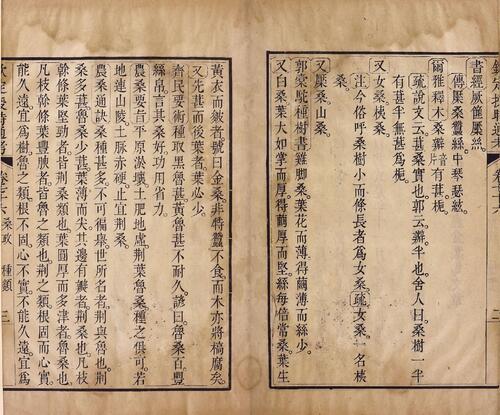 書經厥篚檿絲。
傳檿桑蠶絲中琴瑟絃。
爾雅釋木桑辦音片有葚梔。
疏說文云。葚桑實也。郭云。辦半也。舍人曰。桑樹一半
有葚半無葚為梔。
又女桑桋桑。
注今俗呼桑樹小而條長者為女桑。疏女桑一名桋
桑。
又檿桑山桑。
郭橐駝種樹書雞脚桑葉花而薄得繭薄而絲少。
又白桑葉大如掌而厚得繭厚而堅絲每倍常桑葉生
黃衣而皴者號曰金桑非特蠶不食而木亦將槁腐矣。
又先葚而後葉者葉必少。
齊民要術種取黑魯葚黃魯葚不耐久諺曰魯桑百豐
絲帛言其桑好功用省力。
農桑要旨平原淤壤土肥地虛荆葉魯桑種之俱可若
地連山陵土脉赤硬止宜荆桑。
農桑通訣桑種甚多不可徧舉世所名者荆與魯也荆
桑多葚魯桑少葚葉薄而尖其邊有瓣者荆桑也凡枝
幹條葉堅勁者皆荆桑類也葉圓厚而多津者魯桑也。
凡枝幹條葉豐腴者皆魯之類也荆之類根固而心實。
能久遠宜為樹魯之類根不固心不實不能久遠宜為
桑政 種類 三